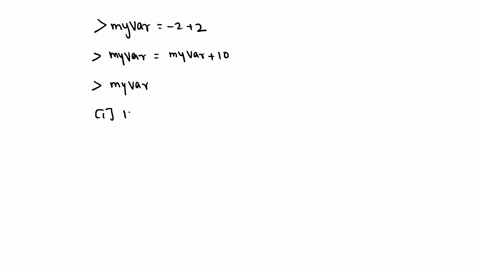 > myVar = -2 + 2
> myVar = myVar + 10
> myVar
[1] 1